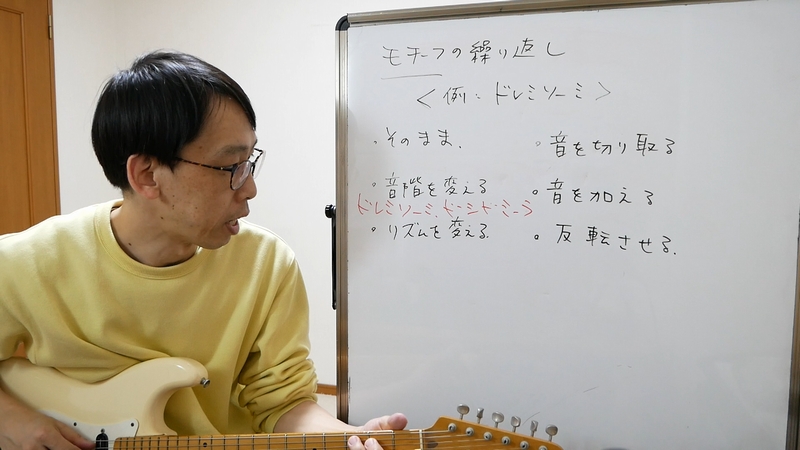 モチーフの繰り返し
<例:ドレミソーミ>
・そのまま.
・音階を変える
ドレミソーミ、ドシドミーラ
・リズムを変える.
・音を切り取る
・音を加える
・反転させる.